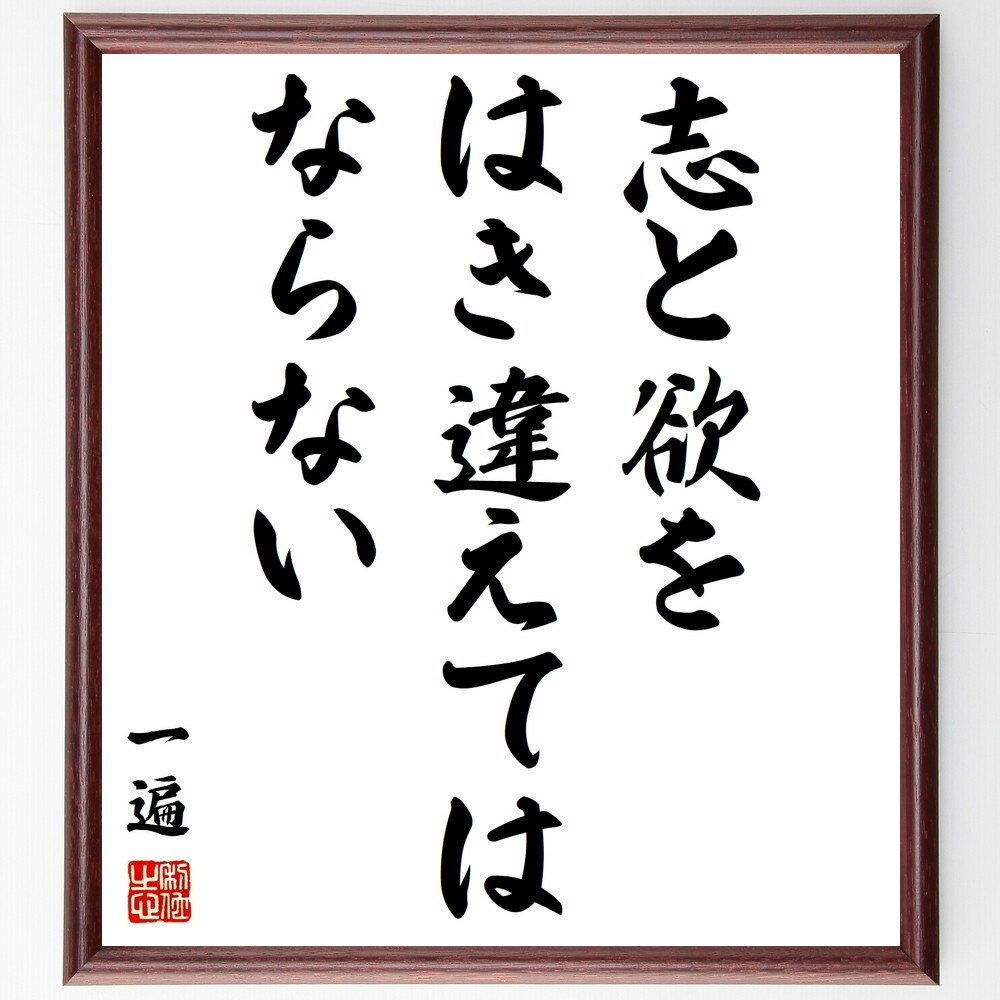 志と欲を
はき違えては
ならない
一遍